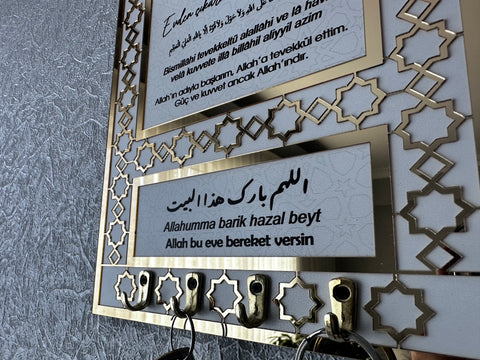 Evden çıkar
Bismillâhi tevekkeltü alallâhi ve lâ hav
velâ kuvvete illâ billâhil aliyyil azim
Allah'ın adıyla başlarım, Allah'a tevekkül ettim.
Güç ve kuvvet ancak Allah'ındır.
اللهم بارك هذا البيت
Allahumma barik hazal beyt
Allah bu eve bereket versin